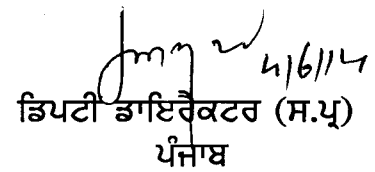 4/6/14
ਡਿਪਟੀ ਡਾਇਰੈਕਟਰ (ਸ.ਪ੍ਰ)
ਪੰਜਾਬ